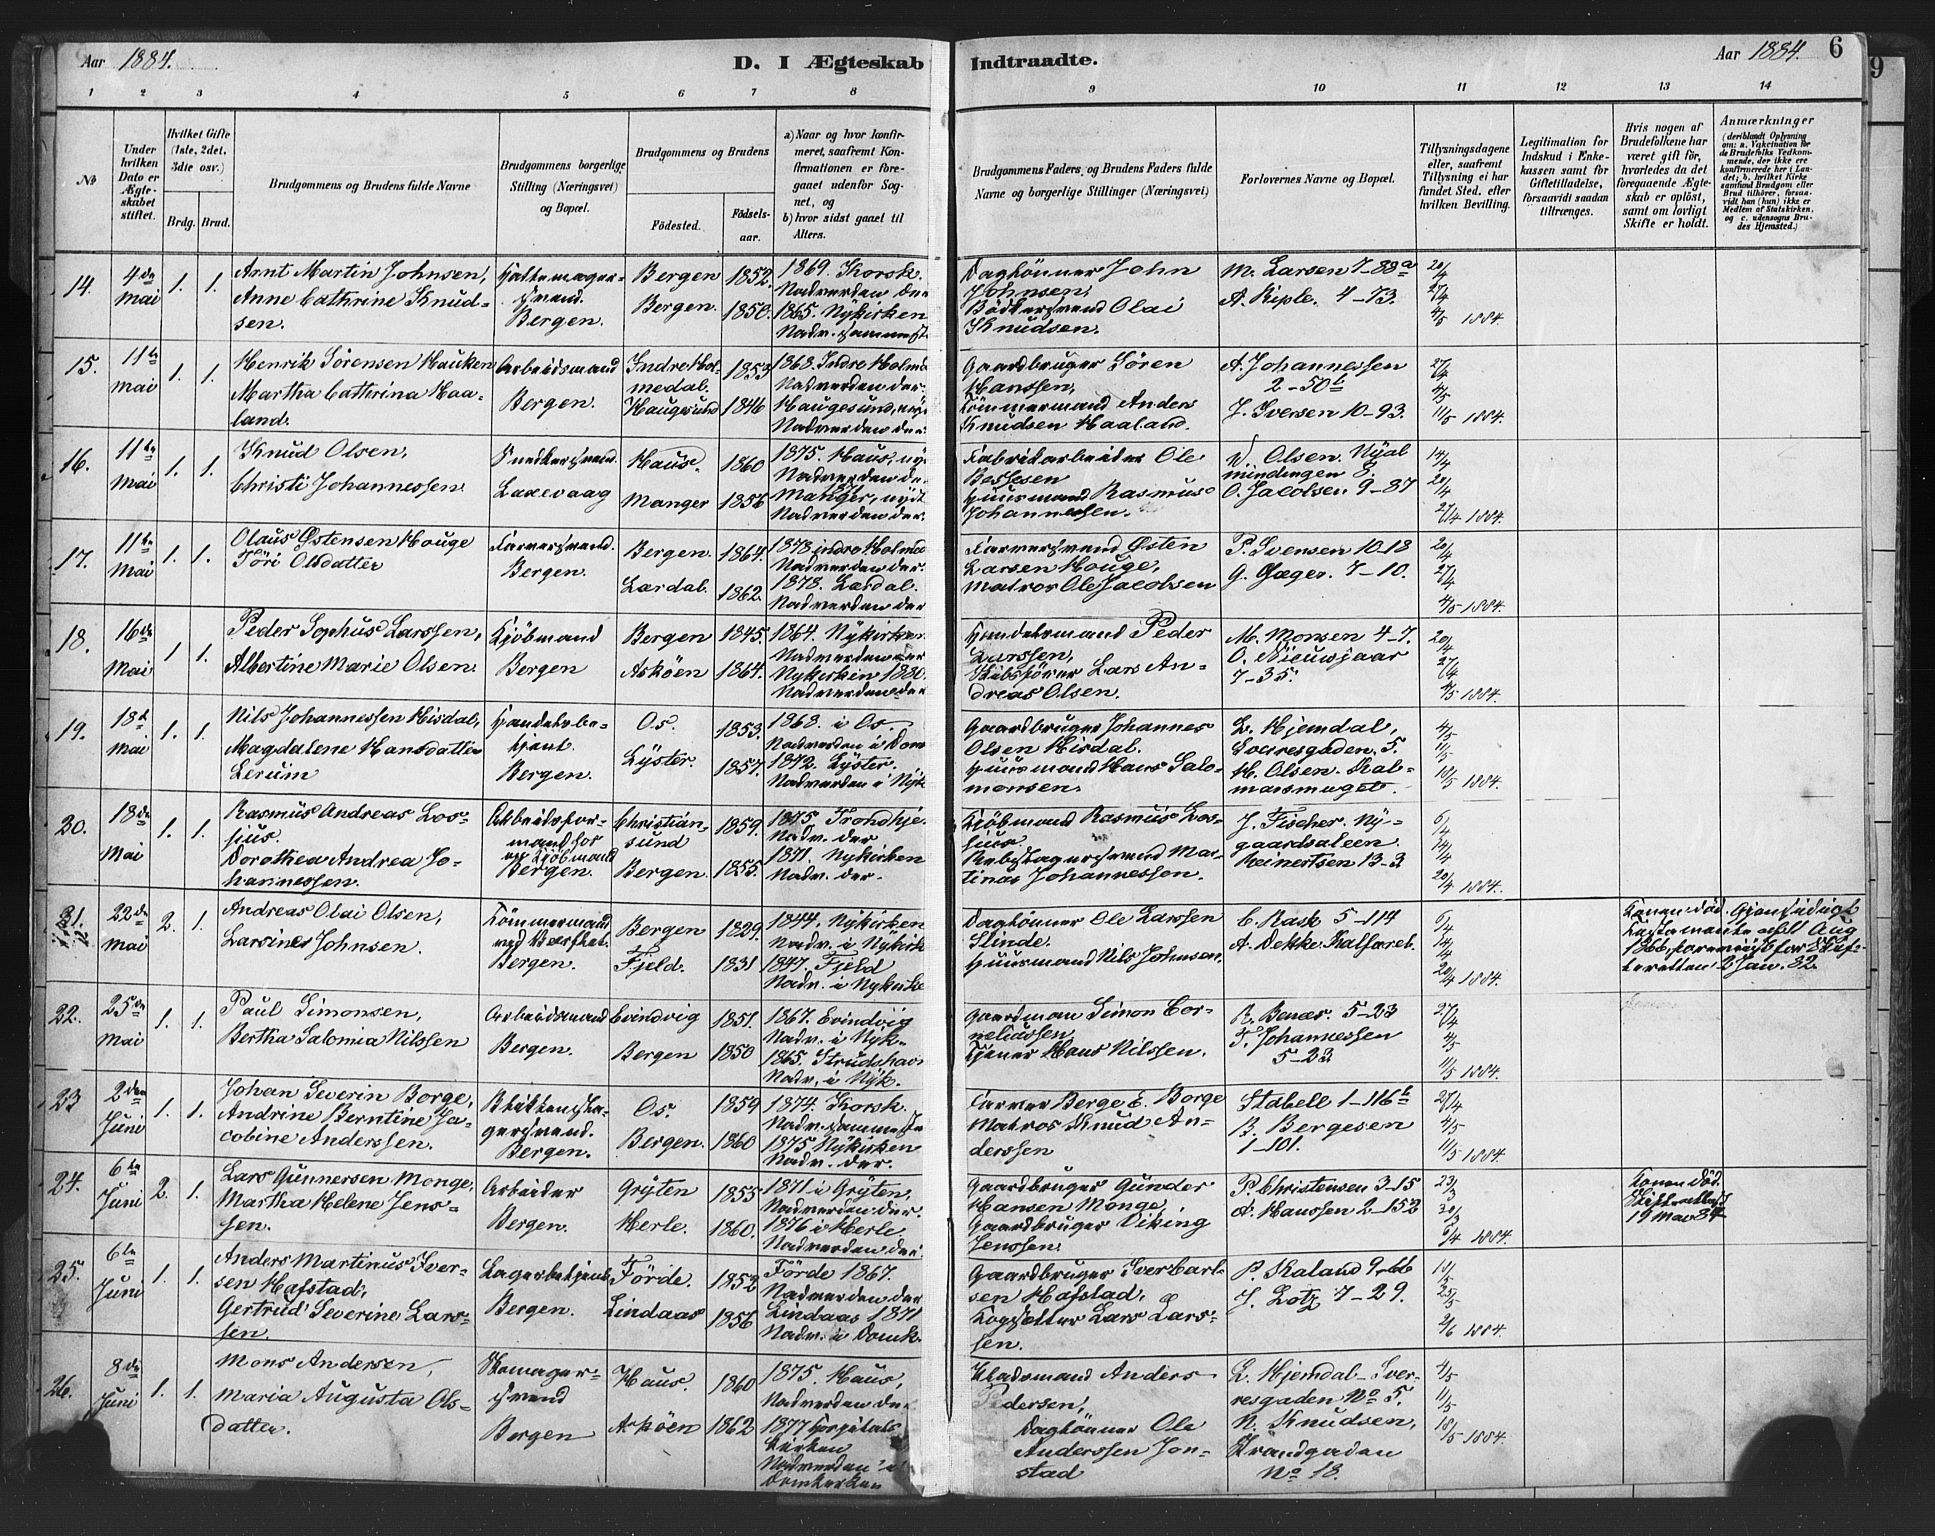 Aar 1884.
D. I Ægteskab Indtraadte.
Aar 1884. 6
9
1 2 3 4 5 6 7 8 9 10 11 12 13 14
No
Under hvilken Dato er Ægteskabet stiftet.
Hvilket Gifte (1ste, 2det, 3die osv.)
Brdg. Brud.
Brudgommens og Brudens fulde Navne
Brudgommens borgerlige Stilling (Næringsvei) og Bopæl.
Brudgommens og Brudens
Fødested.
Fødselsaar.
a) Naar og hvor konfirmeret, saafremt Konfirmationen er foregaaet udenfor Sognet, og
b) hvor sidst gaaet til Alters.
Brudgommens Faders, og Brudens Faders fulde Navne og borgerlige Stillinger (Næringsvei)
Forlovernes Navne og Bopæl.
Tillysningsdagene eller, saafremt Tillysning ei har fundet Sted, efter hvilken Bevilling.
Legitimation for Indskud i Enkekassen samt for Giftetilladelse, forsaavidt saadan tiltrænges.
Hvis nogen af Brudefolkene har været gift før, hvorledes da det foregaaende Ægteskab er opløst, samt om lovligt Skifte er holdt.
Anmærkninger (deriblandt Oplysning om: a. Vakcination for de Brudefolks Vedkommende, der ikke ere konfirmerede her i Landet; b. hvilket Kirkesamfund Brudgom eller Brud tilhører, forsaavidt han (hun) ikke er Medlem af Statskirken, og c. udensogns Brudes Hjemsted.)
14. 4de Mai 1. 1.
Arnt Martin Johnsen,
Anne Cathrine Knudsen.
Hattemagersvend. Bergen.
Bergen 1852.
Bergen. 1850.
1869. Korsk. Nadverden der
1865. Nykirken Nadv. sammest.
Dagtönner John Johnsen,
Bödkersvend Olai Knudsen.
M. Larsen 7-88a
A. Riple. 4-73.
20/4 27/4 4/5 1884.
15. 11te Mai 1. 1.
Henrik Sörensen Hauken
Martha Cathrina Haaland.
Arbeidsmand Bergen.
Indre Holmedal. 1853
Haugesund 1846
1868. Indre Holme Nadverden der.
Haugesund, Nadverden der.
Gaardbruger Sören Hanssen,
Tömmermand Anders Knudsen Haaland.
A. Johannessen 2-50b
J. Iversen 10-93.
27/4 4/5 11/5 1884.
16. 11te Mai 1. 1.
Knud Olsen,
Christi Johannessen
Snedkersvend. Laxevaag
Haus. 1860
Manger 1856
1875. Haus, Nadverden de
Manger, nydt Nadverden der.
Fabrikarbeider Ole
Huusmand Rasmus Johannessen.
Olsen. Nyal
O. Jacobsen 9-87
14/4 20/4 27/4 1884.
17. 11te Mai 1. 1.
Olaus Østensen Houge
Töri Olsdatter
Farversvend. Bergen.
Bergen. 1864.
Lærdal. 1862.
1878 indre Holmed Nadverden der.
1878. Lærdal. Nadverden der
Farversvend Østen Larsen Houge,
Matros Ole Jacobsen
P. Svensen 10-18
G. Jæger. 7-10.
20/4 27/4 4/5 1884.
18. 16de Mai 1 1.
Peder Sophus Larssen,
Albertine Marie Olsen.
Kjöbmand Bergen
Bergen 1845.
Asköen 1864.
1864. Nykirken Nadverden der
Nykirken 1880. Nadverden der
Handelsmand Peder Larssen,
Skibsförer Lars Andreas Olsen.
M. Monsen 4-7.
O. Nieuwjaar 7-35.
20/4 27/4 4/5 1884.
19. 18d Mai 1. 1.
Nils Johannessen Hisdal,
Magdalene Hansdatter Lerum
Handelsbetjent. Bergen.
Os. 1853.
Lyster. 1857.
1868. i Os Nadverden i Dom
1872. Lyster. Nadverden i Nyk
Gaardbruger Johannes Olsen Hisdal.
Huusmand Hans Salomonsen.
L. Hjemdal, Sverresgaden. 5.
H. Olsen. Kalmarsmuget.
4/5 11/5 18/5 1884.
20. 18de Mai 1. 1.
Rasmus Andreas Lossius.
Dorothea Andrea Johannessen.
Arbeidsformand for en Kjöbmand Bergen.
Christiansund 1859.
Bergen. 1855.
1875 Trondhje. Nadv. der
1871. Nykirken Nadv. der.
Kjöbmand Rasmus Lossius.
Rebslagersvend Martinus Johannessen.
J. Fischer. Nygaardsaleen.
Reinertsen 13-3
6/4 14/4 20/4 1884.
21. 22de Mai 2. 1.
Andreas Olai Olsen,
Larsine Johnsen.
Tömmermand ved Værftet. Bergen.
Bergen 1829.
Fjeld. 1831
1844. Nykirken Nadv. i Nykirk
1847. Fjeld Nadv. i Nykirke
Dagtönner Ole Larssen Slinde.
Huusmand Nils Johnsen.
C. Rask 5-114
A. Dekke. Kalfaret.
6/4 14/4 20/4 1884.
Konen död. Gjensidigt Testamente Aug 1866, foreviist for Skifteretten 2 Jan. 82.
22. 25de Mai 1. 1.
Paul Simonsen,
Bertha Salomia Nilssen
Arbeidsmand Bergen.
Evindvig 1851.
Bergen 1850
1867. Evindvig Nadv. i Nyk.
1865. Strudshavn Nadv. i Nyk.
Gaardman Simon Corneliussen
Tjener Hans Nilssen.
R. Benæs. 5-23
T. Johannessen 5-23
27/4 4/5 11/5 1884.
23 2den Juni 1. 1.
Johan Severin Borge,
Andrine Berntine Jacobine Anderssen.
Blikkenslagersvend. Bergen.
Os. 1859
Bergen. 1860
1874. Korsk. Nadv. sammeste
1875 Nykirken Nadv. der.
Farver Berge E. Borge
Matros Knud Anderssen
Stabell 1-116b
B. Bergesen 1-101.
27/4 4/5 11/5 1884.
24. 6te Juni 2. 1.
Lars Gunnersen Monge,
Martha Helene Jenssen.
Arbeider Bergen.
Gryten 1855
Herle. 1860.
1871 i Gryten, Nadverden der.
1876 i Herle. Nadverden der.
Gaardbruger Gunder Hansen Monge,
Gaardbruger Viking Jenssen.
P. Christensen 3-15
A. Hanssen 2-152
23/3 30/3 6/4 1884.
Konen död. Skifteattest 19 Mai 84.
25. 6te Juni 1. 1.
Anders Martinus Iversen Hafstad,
Gertrud Severine Larssen.
Lagerbetjent Bergen.
Förde. 1852
Lindaas 1856
Förde 1867. Nadverden der
Lindaas 1871 Nadv. i Domk.
Gaardbruger Iver Carlsen Hafstad,
Lars Larssen.
P. Kaland 9-66
J. Lotz 7-29.
18/5 25/5 2/6 1884.
26. 8de Juni 1. 1.
Mons Andersen,
Maria Augusta Olsdatter.
Skomagersvend Bergen
Haus. 1860
Asköen 1862
1875. Haus, Nadverden der
1877 Hospitalskirken Nadverden i Domkirken
Anders Pedersen,
Dagtönner Ole Anderssen Jonstad
L. Hjemdal Sverresgaden No 5.
N. Knudsen, Strandgaden No 18.
4/5 11/5 18/5 1884.